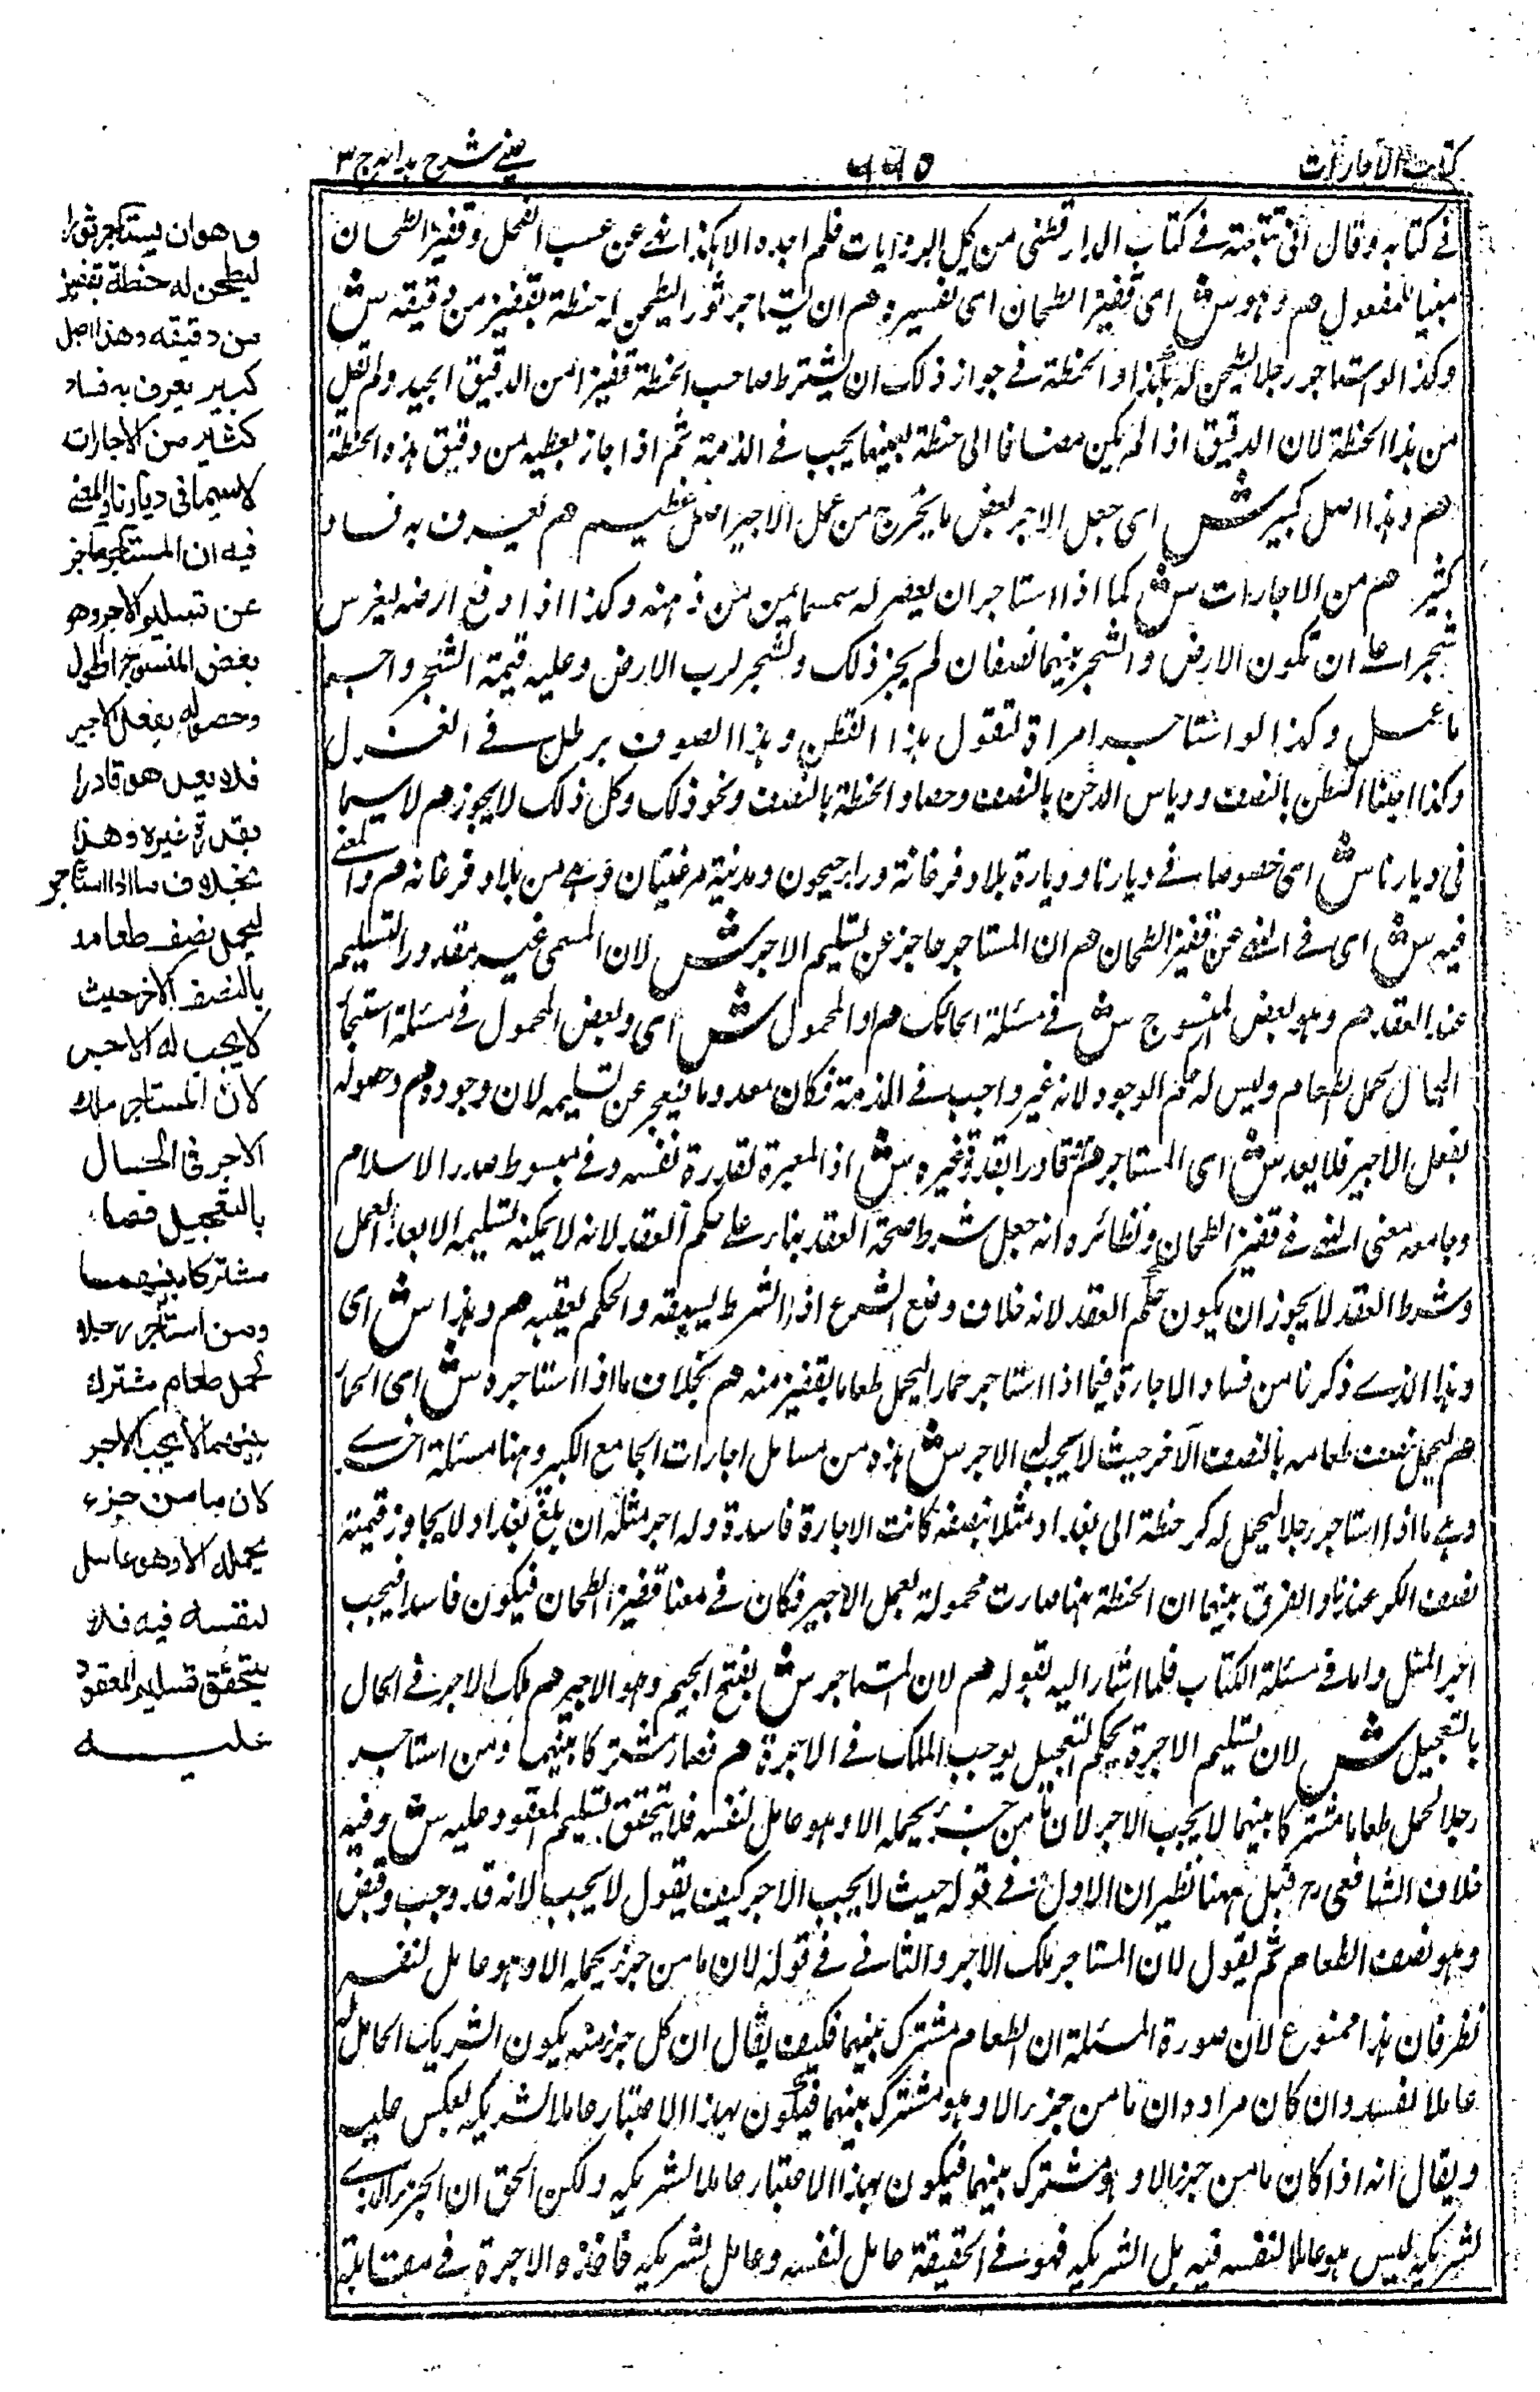 كتاب الاجارات
٦٦٥
عيني شرح هدايه ج ٣
في كتابه وقال اني تتبعته في كتاب الدارقطني من كل الروايات فلم اجده الا هكذا نهى عن عسب الفحل وقفيز الطحان
مبنيا للمفعول هم وهو ش اى قفيز الطحان اى تفسيره هم ان يستاجر ثورا ليطحن له حنطة بقفيز من دقيقه ش
وكذا لو استاجر رجلا ليطحن له بهذا والحنطة في جواز ذلك ان يشترط صاحب الحنطة قفيزا من الدقيق الجيد ولم يقل
من هذا الحنطة لان الدقيق اذا لم يكن مضافا الى حنطة بعينها يجب في الذمة ثم اذا جاز يعطيه من دقيق هذه الحنطة
هم وهذا اصل كبير ش اى جعل الاجر بعض ما يخرج من عمل الاجير اصل عظيم هم يعرف به فساد
كثير هم من الاجارات ش كما اذا استاجر ان يعصر له سمسما بمن من دهنه وكذا اذا دفع ارضه ليغرس
شجرا على ان تكون الارض والشجر بينهما نصفان لم يجز ذلك والشجر لرب الارض وعليه قيمة الشجر واجر
ما عمل وكذا لو استاجر امراة لتغزل هذا القطن وهذا الصوف برطل من الغزل
وكذا اجتناء القطن بالنصف ودياس الدخن بالنصف وحصاد الحنطة بالنصف ونحو ذلك وكل ذلك لا يجوز هم لا سيما
في ديارنا ش اى خصوصا في ديارنا وديارة بلاد فرغانة وراء جيحون ومدينة مرغينان وهى من بلاد فرغانه هم والمعنى
فيه ش اى في النهى عن قفيز الطحان هم ان المستاجر عاجز عن تسليم الاجر ش لان المسمى غير مقدور التسليم
عند العقد هم وهو بعض المنسوج ش في مسئلة الحائك هم او المحمول ش اى وبعض المحمول في مسئلة استيجار
الحمال لحمل الطعام وليس له حكم الوجود لانه غير واجب في الذمة فكان معدوما فيعجز عن تسليمه لان وجوده هم وحصوله
بفعل الاجير فلا يعد ش اى المستاجر هم قادرا بقدرة غيره ش اذ المعبرة لقدرة نفسه وفي مبسوط صدر الاسلام
وجامعه معنى النهى في قفيز الطحان ونظائره انه جعل شرط صحة العقد بناء على حكم العقد لانه لا يمكنه تسليمه الا بعد العمل
وشرط العقد لا يجوز ان يكون حكم العقد لانه خلاف وضع الشرع اذ الشرط يسبقه والحكم يعقبه هم وهذا ش اى
وهذا الذى ذكرنا من فساد الاجارة فيما اذا استاجر حمارا ليحمل طعاما بقفيز منه هم بخلاف ما اذا استاجره ش اى الحمار
هم ليحمل نصف طعامه بالنصف الآخر حيث لا يجب له الاجر ش هذه من مسائل اجارات الجامع الكبير وهنا مسئلة اخرى
وهى ما اذا استاجر رجلا ليحمل له كر حنطة الى بغداد مثلا بنصفه كانت الاجارة فاسدة وله اجر مثله ان بلغ بغداد ولا يجاوز قيمته
نصف الكر عندنا والفرق بينهما ان الحنطة هنا صارت محمولة بعمل الاجير فكان في معنا قفيز الطحان فيكون فاسدا فيجب
اجر المثل واما في مسئلة الكتاب فلما اشار اليه بقوله هم لان المستاجر ش بفتح الجيم وهو الاجير هم ملك الاجر في الحال
بالتعجيل ش لان تسليم الاجرة بحكم التعجيل يوجب الملك في الاجرة هم فصار مشتركا بينهما ومن استاجر
رجلا لحمل طعاما مشتركا بينهما لا يجب الاجر لان ما من جزء يحمله الا وهو عامل لنفسه فلا يتحقق تسليم المعقود عليه ش وفيه
خلاف الشافعى رح قيل ههنا نظران الاول في قوله حيث لا يجب الاجر كيف يقول لا يجب لانه قد وجب وقبض
وهو نصف الطعام ثم يقول لان المستاجر ملك الاجر والثاني في قوله لان ما من جزء يحمله الا وهو عامل لنفسه
نظر فان هذا ممنوع لان صورة المسئلة ان الطعام مشترك بينهما فكيف يقال ان كل جزء منه يكون الشريك الحامل له
عاملا لنفسه وان كان مراده ان ما من جزء الا وهو مشترك بينهما فيكون بهذا الاعتبار عاملا لشريكه يعكس عليه
ويقال انه اذا كان ما من جزء الا وهو مشترك بينهما فيكون بهذا الاعتبار عاملا لشريكه ولكن الحق ان الجزء الذى
لشريكه ليس هو عاملا لنفسه فيه بل لشريكه فهو في الحقيقة عامل لنفسه وعامل لشريكه فاخذه الاجرة في مقابلة
وهو ان يستاجر ثورا
ليطحن له حنطة بقفيز
من دقيقه وهذا اصل
كبير يعرف به فساد
كثير من الاجارات
لاسيما في ديارنا والمعنى
فيه ان المستاجر عاجز
عن تسليم الاجر وهو
بعض المنسوج او المحمول
وحصوله بفعل الاجير
فلا يعد هو قادرا
بقدرة غيره وهذا
بخلاف ما اذا استاجر
ليحمل نصف طعامه
بالنصف الآخر حيث
لا يجب له الاجر
لان المستاجر ملك
الاجر في الحال
بالتعجيل فصار
مشتركا بينهما
ومن استاجر رجلا
لحمل طعام مشترك
بينهما لا يجب الاجر
لان ما من جزء
يحمله الا وهو عامل
لنفسه فيه فلا
يتحقق تسليم المعقود
عليه